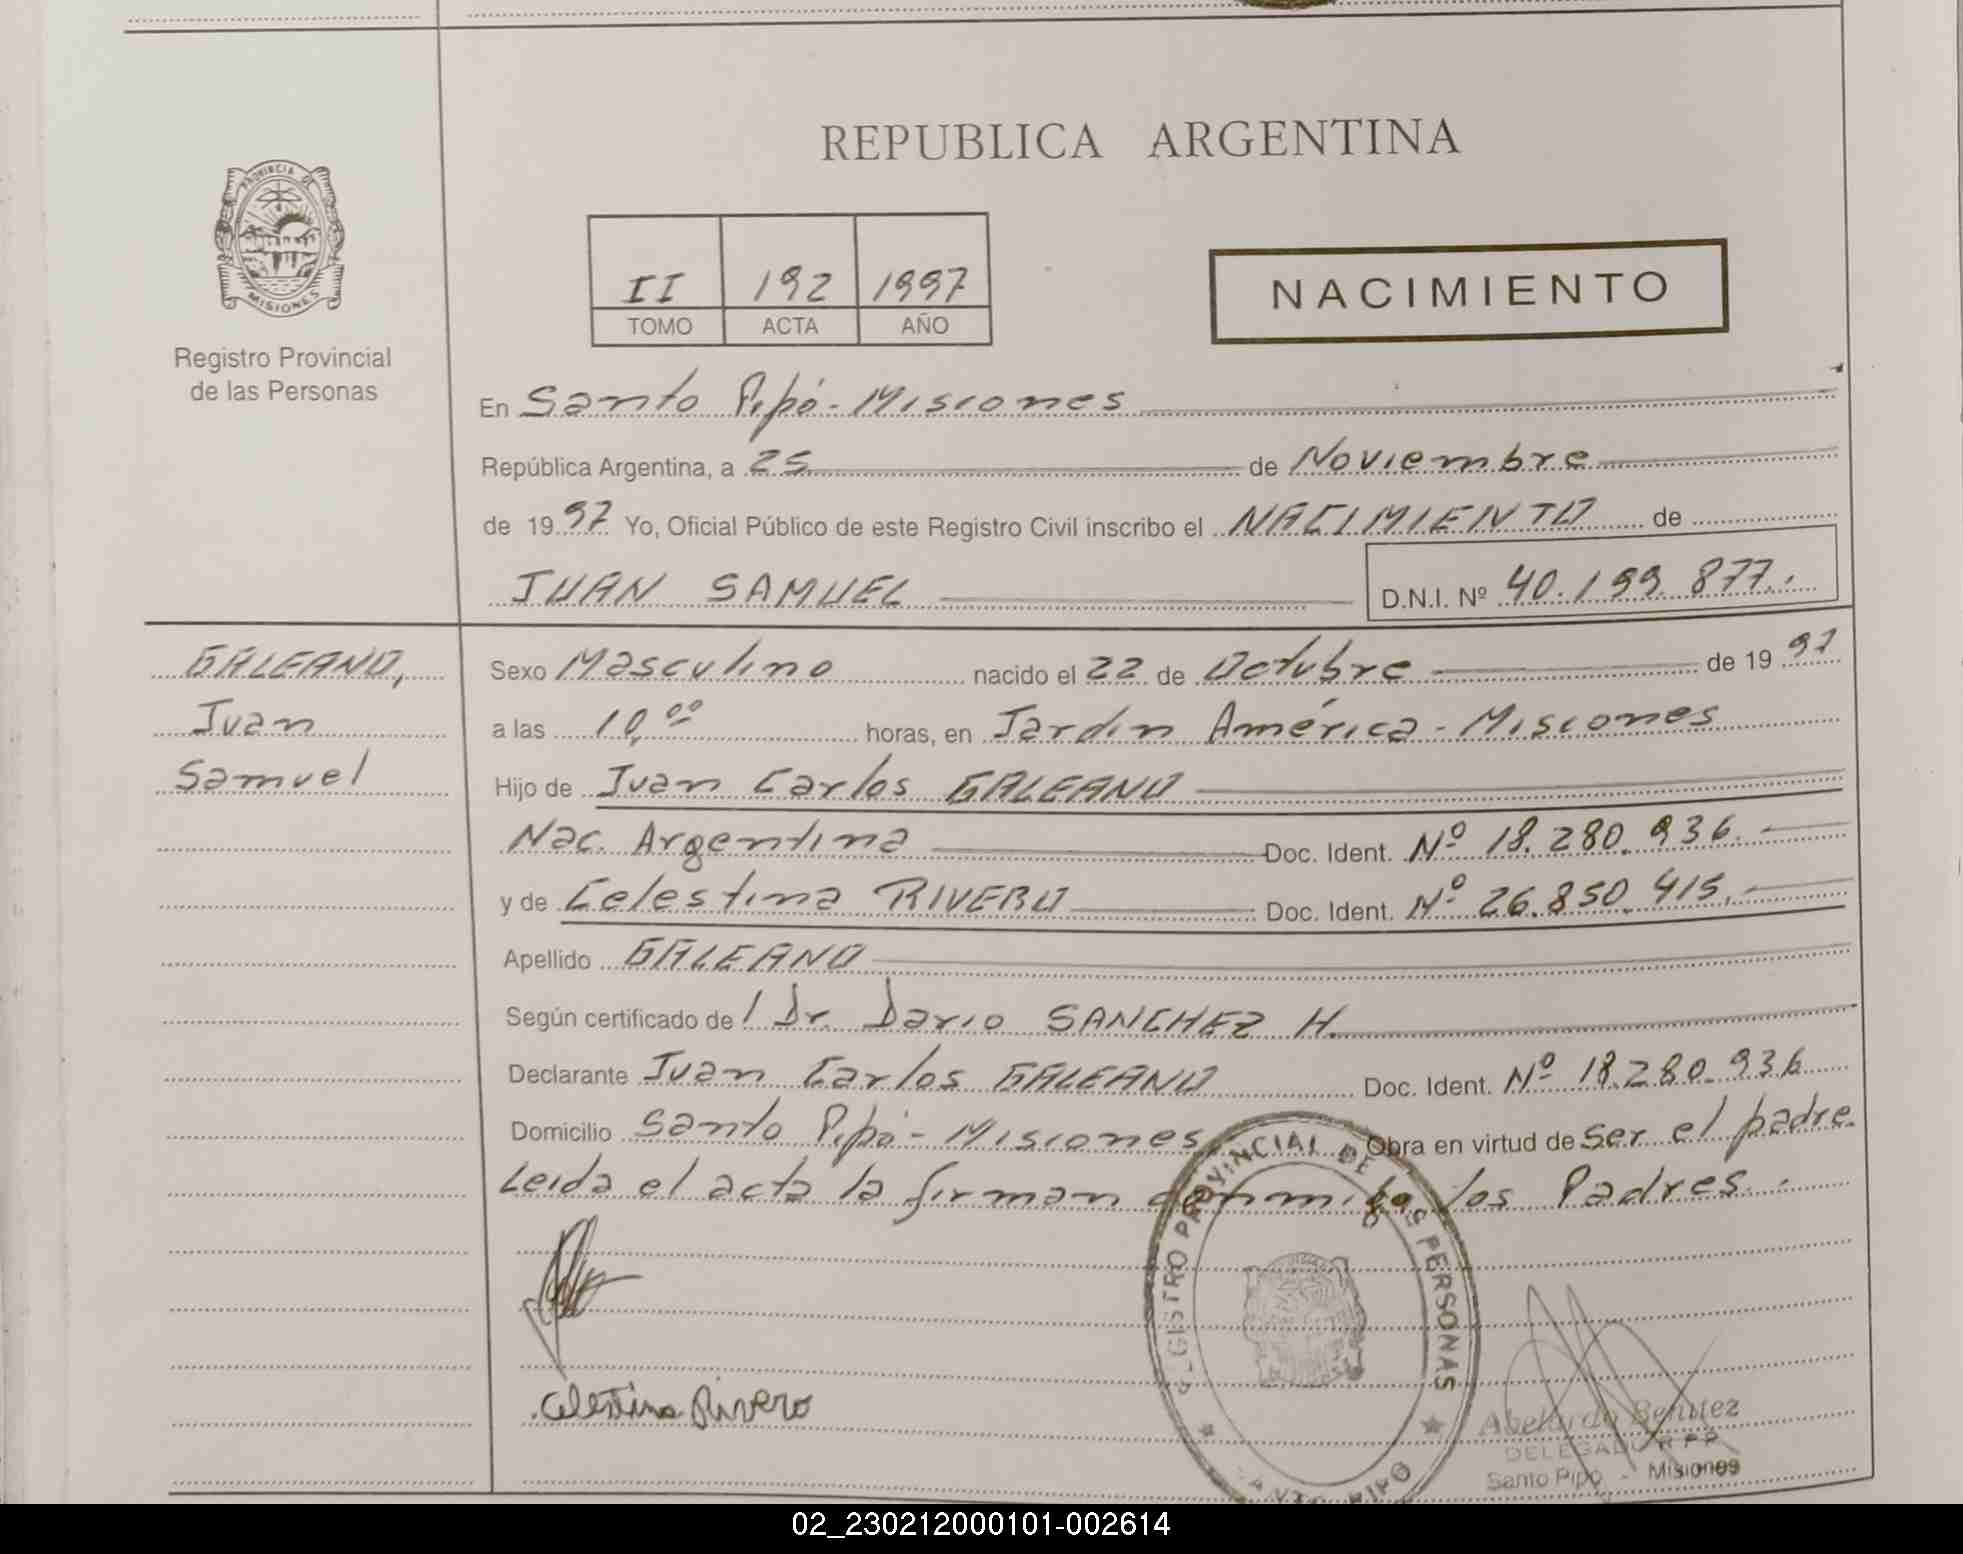 REPUBLICA ARGENTINA
PROVINCIA DE
MISIONES
Registro Provincial
de las Personas
II 192 1997
TOMO ACTA AÑO
NACIMIENTO
En Santo Pipó - Misiones
República Argentina, a 25 de Noviembre
de 1997 Yo, Oficial Público de este Registro Civil inscribo el NACIMIENTO de
JUAN SAMUEL D.N.I. Nº 40.199.877.
GALEANO,
Juan
Samuel
Sexo Masculino nacido el 22 de Octubre de 1997
a las 10,00 horas, en Jardin América - Misiones
Hijo de Juan Carlos GALEANO
Nac. Argentina Doc. Ident. Nº 18.280.936.
y de Celestina RIVERO Doc. Ident. Nº 26.850.415.
Apellido GALEANO
Según certificado de l Dr. Dario SANCHEZ H.
Declarante Juan Carlos GALEANO Doc. Ident. Nº 18.280.936
Domicilio Santo Pipó - Misiones Obra en virtud de ser el padre.
Leida el acta la firman conmigo los Padres.
Celestina Rivero
REGISTRO PROVINCIAL DE LAS PERSONAS
SANTO PIPO
Abelardo Benitez
DELEGADO R P P
Santo Pipó - Misiones
02_230212000101-002614